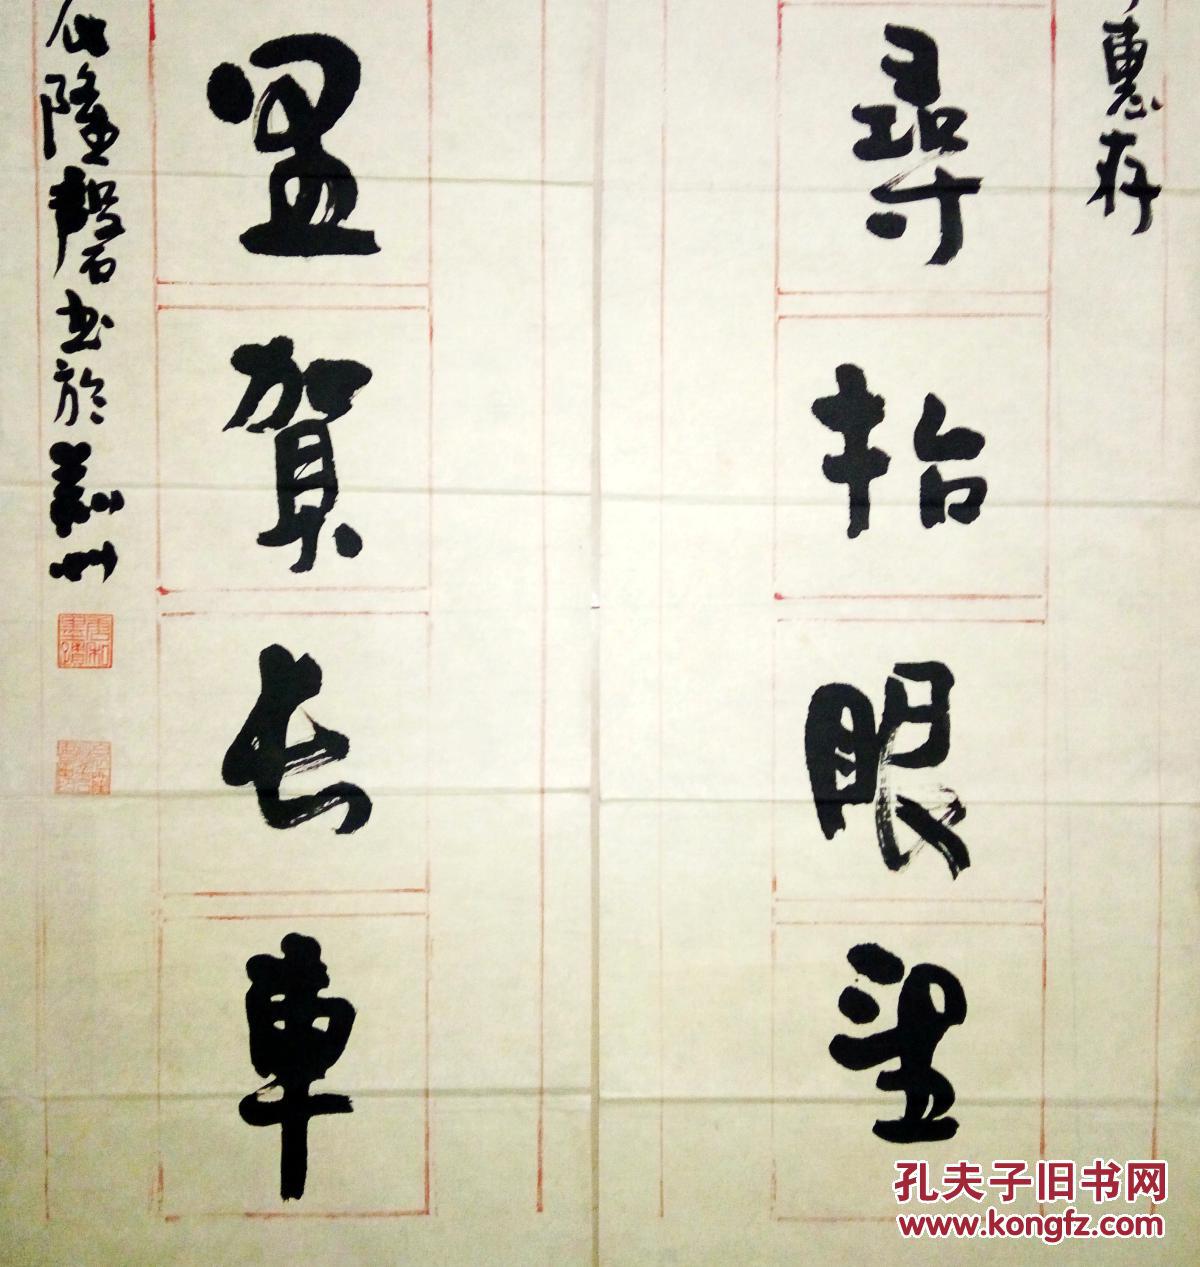 惠存
尋抬眼望
盟賀長車
隆磬书於蘇州
孔夫子旧书网
www.kongfz.com